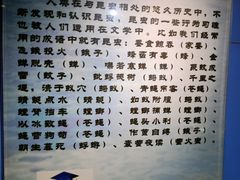 人类在与昆虫相处的悠久历史中，不
断发现和认识昆虫，昆虫的一些行为习
也被人们运用在文学中。比如我们经常
用的成语中就有昆虫：蚕食鲸吞（家蚕）
飞蛾投火（蛾）、蜂虿有毒（蜂）、金
蝉脱壳（蝉）、噤若寒蝉（蝉）、聚蚊成
雷（蚊子）、蚍蜉撼树（蚂蚁）、千里之
堤，溃于蚁穴（蚂蚁）、青蝇吊客（苍蝇）
蜻蜓点水（蜻蜓）、如蚁附膻（蚂蚁）、
螳臂挡车（螳螂）、螳螂捕蝉（螳螂）、
以冰致蝇（苍蝇）、蝇头小利（苍蝇）、
蝇营狗苟（苍蝇）、作茧自缚（蛾子）、
朝生暮死（蜉蝣）、囊萤夜读（萤火虫）